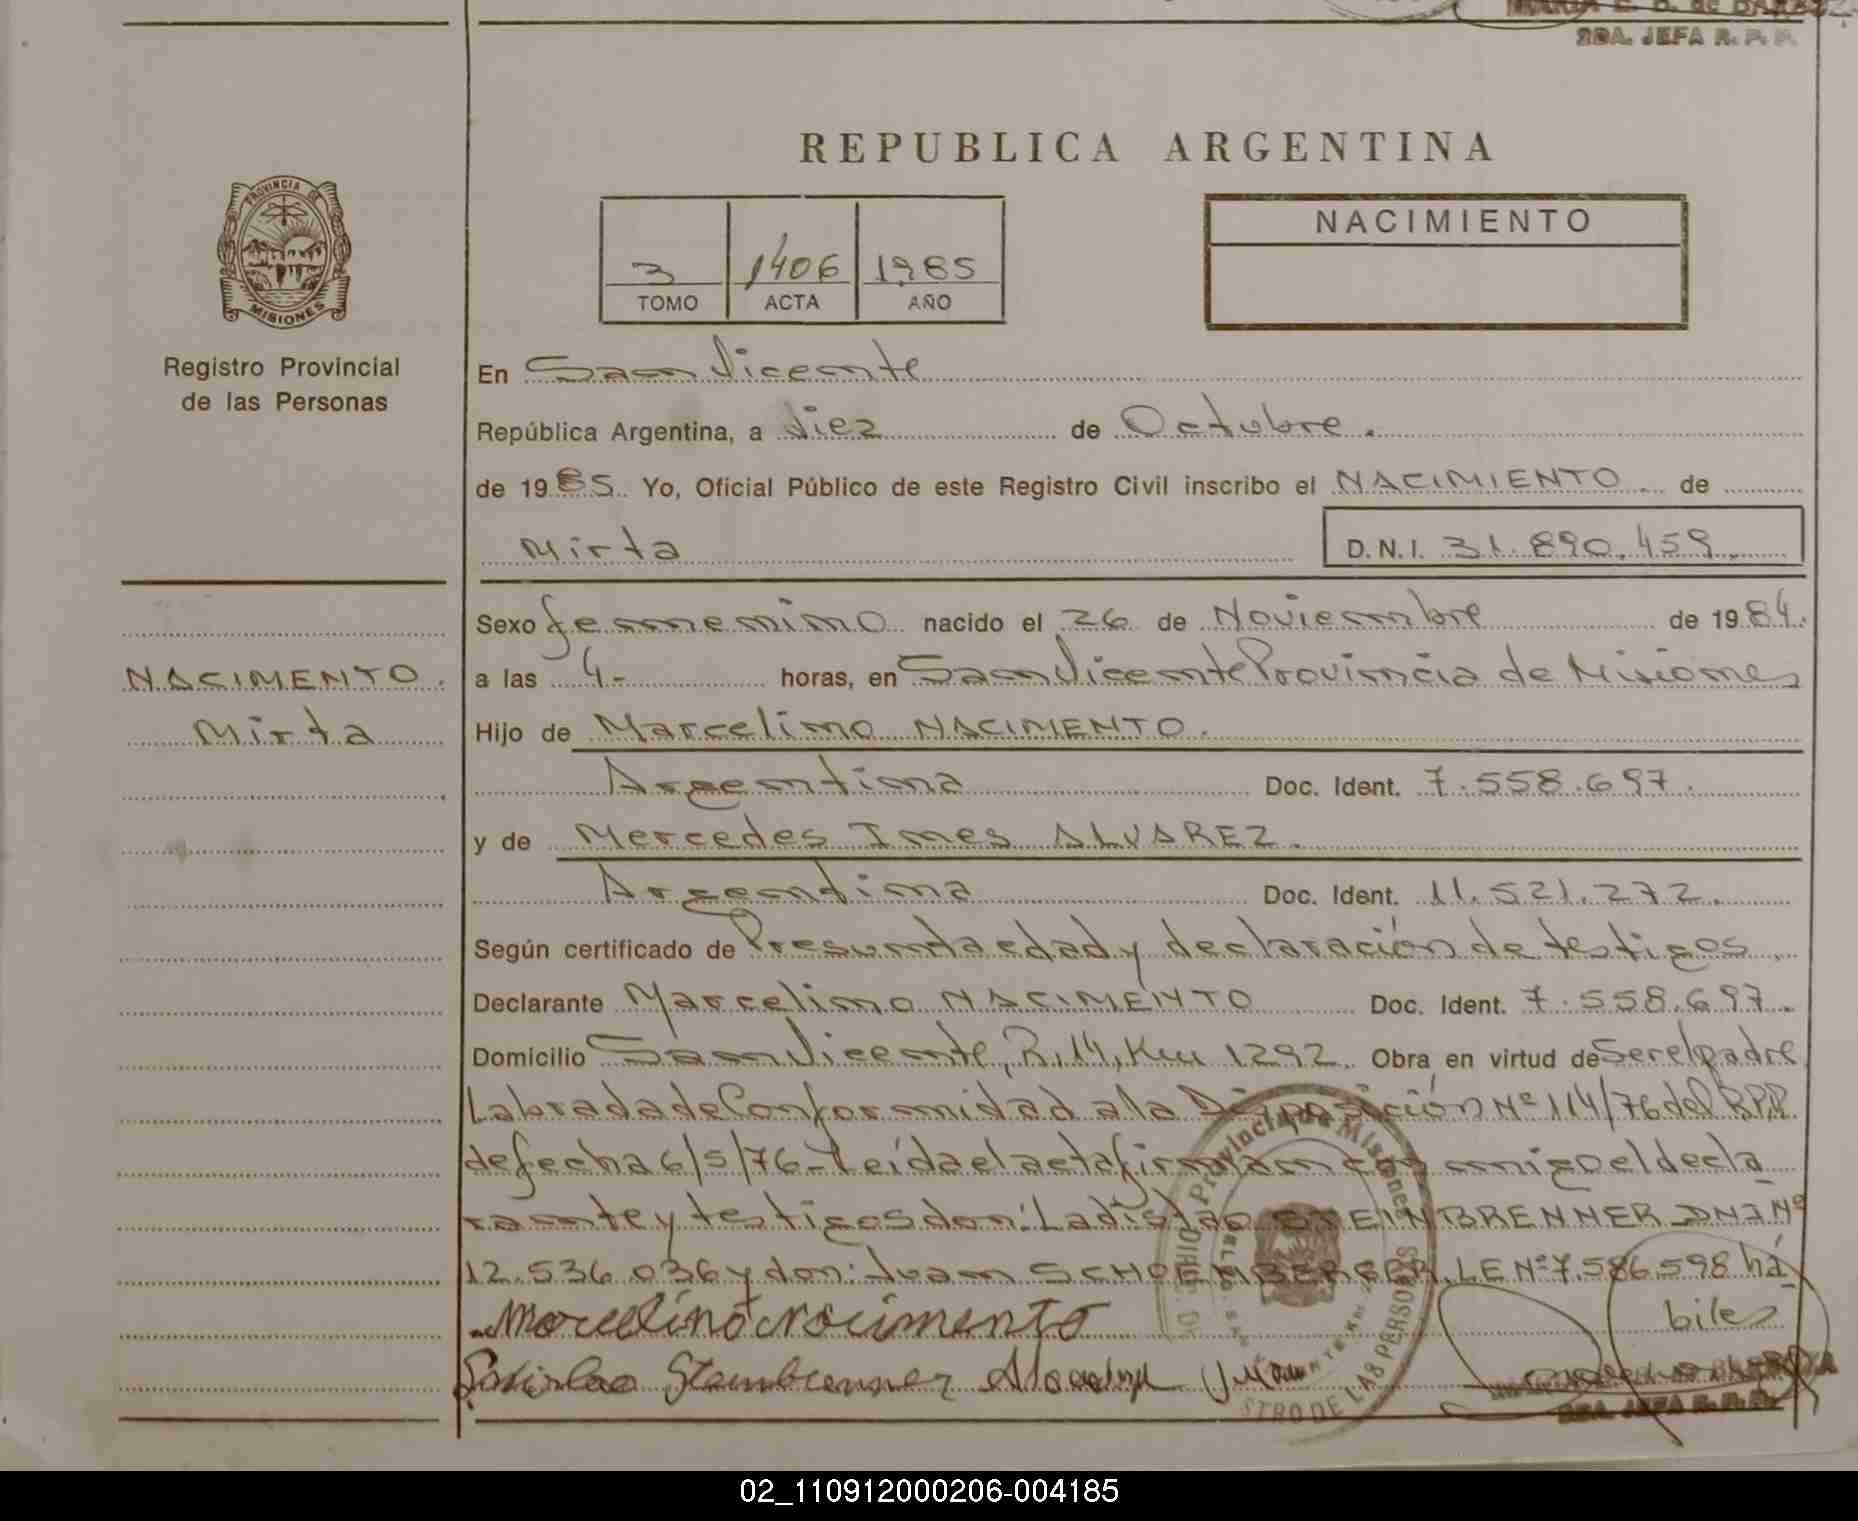 2DA. JEFA R. P. P.
REPUBLICA ARGENTINA
PROVINCIA DE
MISIONES
Registro Provincial
de las Personas
3 1406 1985
TOMO ACTA AÑO
NACIMIENTO
En San Vicente
República Argentina, a diez de Octubre.
de 1985 Yo, Oficial Público de este Registro Civil inscribo el NACIMIENTO de
Mirta D.N.I. 31.890.459.
NACIMENTO.
Mirta
Sexo femenino nacido el 26 de Noviembre de 1984.
a las 4- horas, en San Vicente Provincia de Misiones
Hijo de Marcelino NACIMENTO.
Argentina Doc. Ident. 7.558.697.
y de Mercedes Ines ALVAREZ.
Argentina Doc. Ident. 11.521.272.
Según certificado de Presunta edad y declaración de testigos
Declarante Marcelino NACIMENTO Doc. Ident. 7.558.697.
Domicilio San Vicente, R.14, Km 1292. Obra en virtud de Ser el padre
Labrada de Conformidad a la Disposición Nº 114/76 del R.P.P.
de fecha 6/5/76-Leída el acta firman con migo el decla
rante y testigos don: Ladislao STEINBRENNER DNI Nº
12.536.036 y don: Juan SCHOENBERGER, LE Nº 7.586.598 há
biles
Marcelino Nacimento
Stembrenner Juan
Provincia de Misiones
REGISTRO DE LAS PERSONAS
2DA. JEFA R.P.P.
02_110912000206-004185